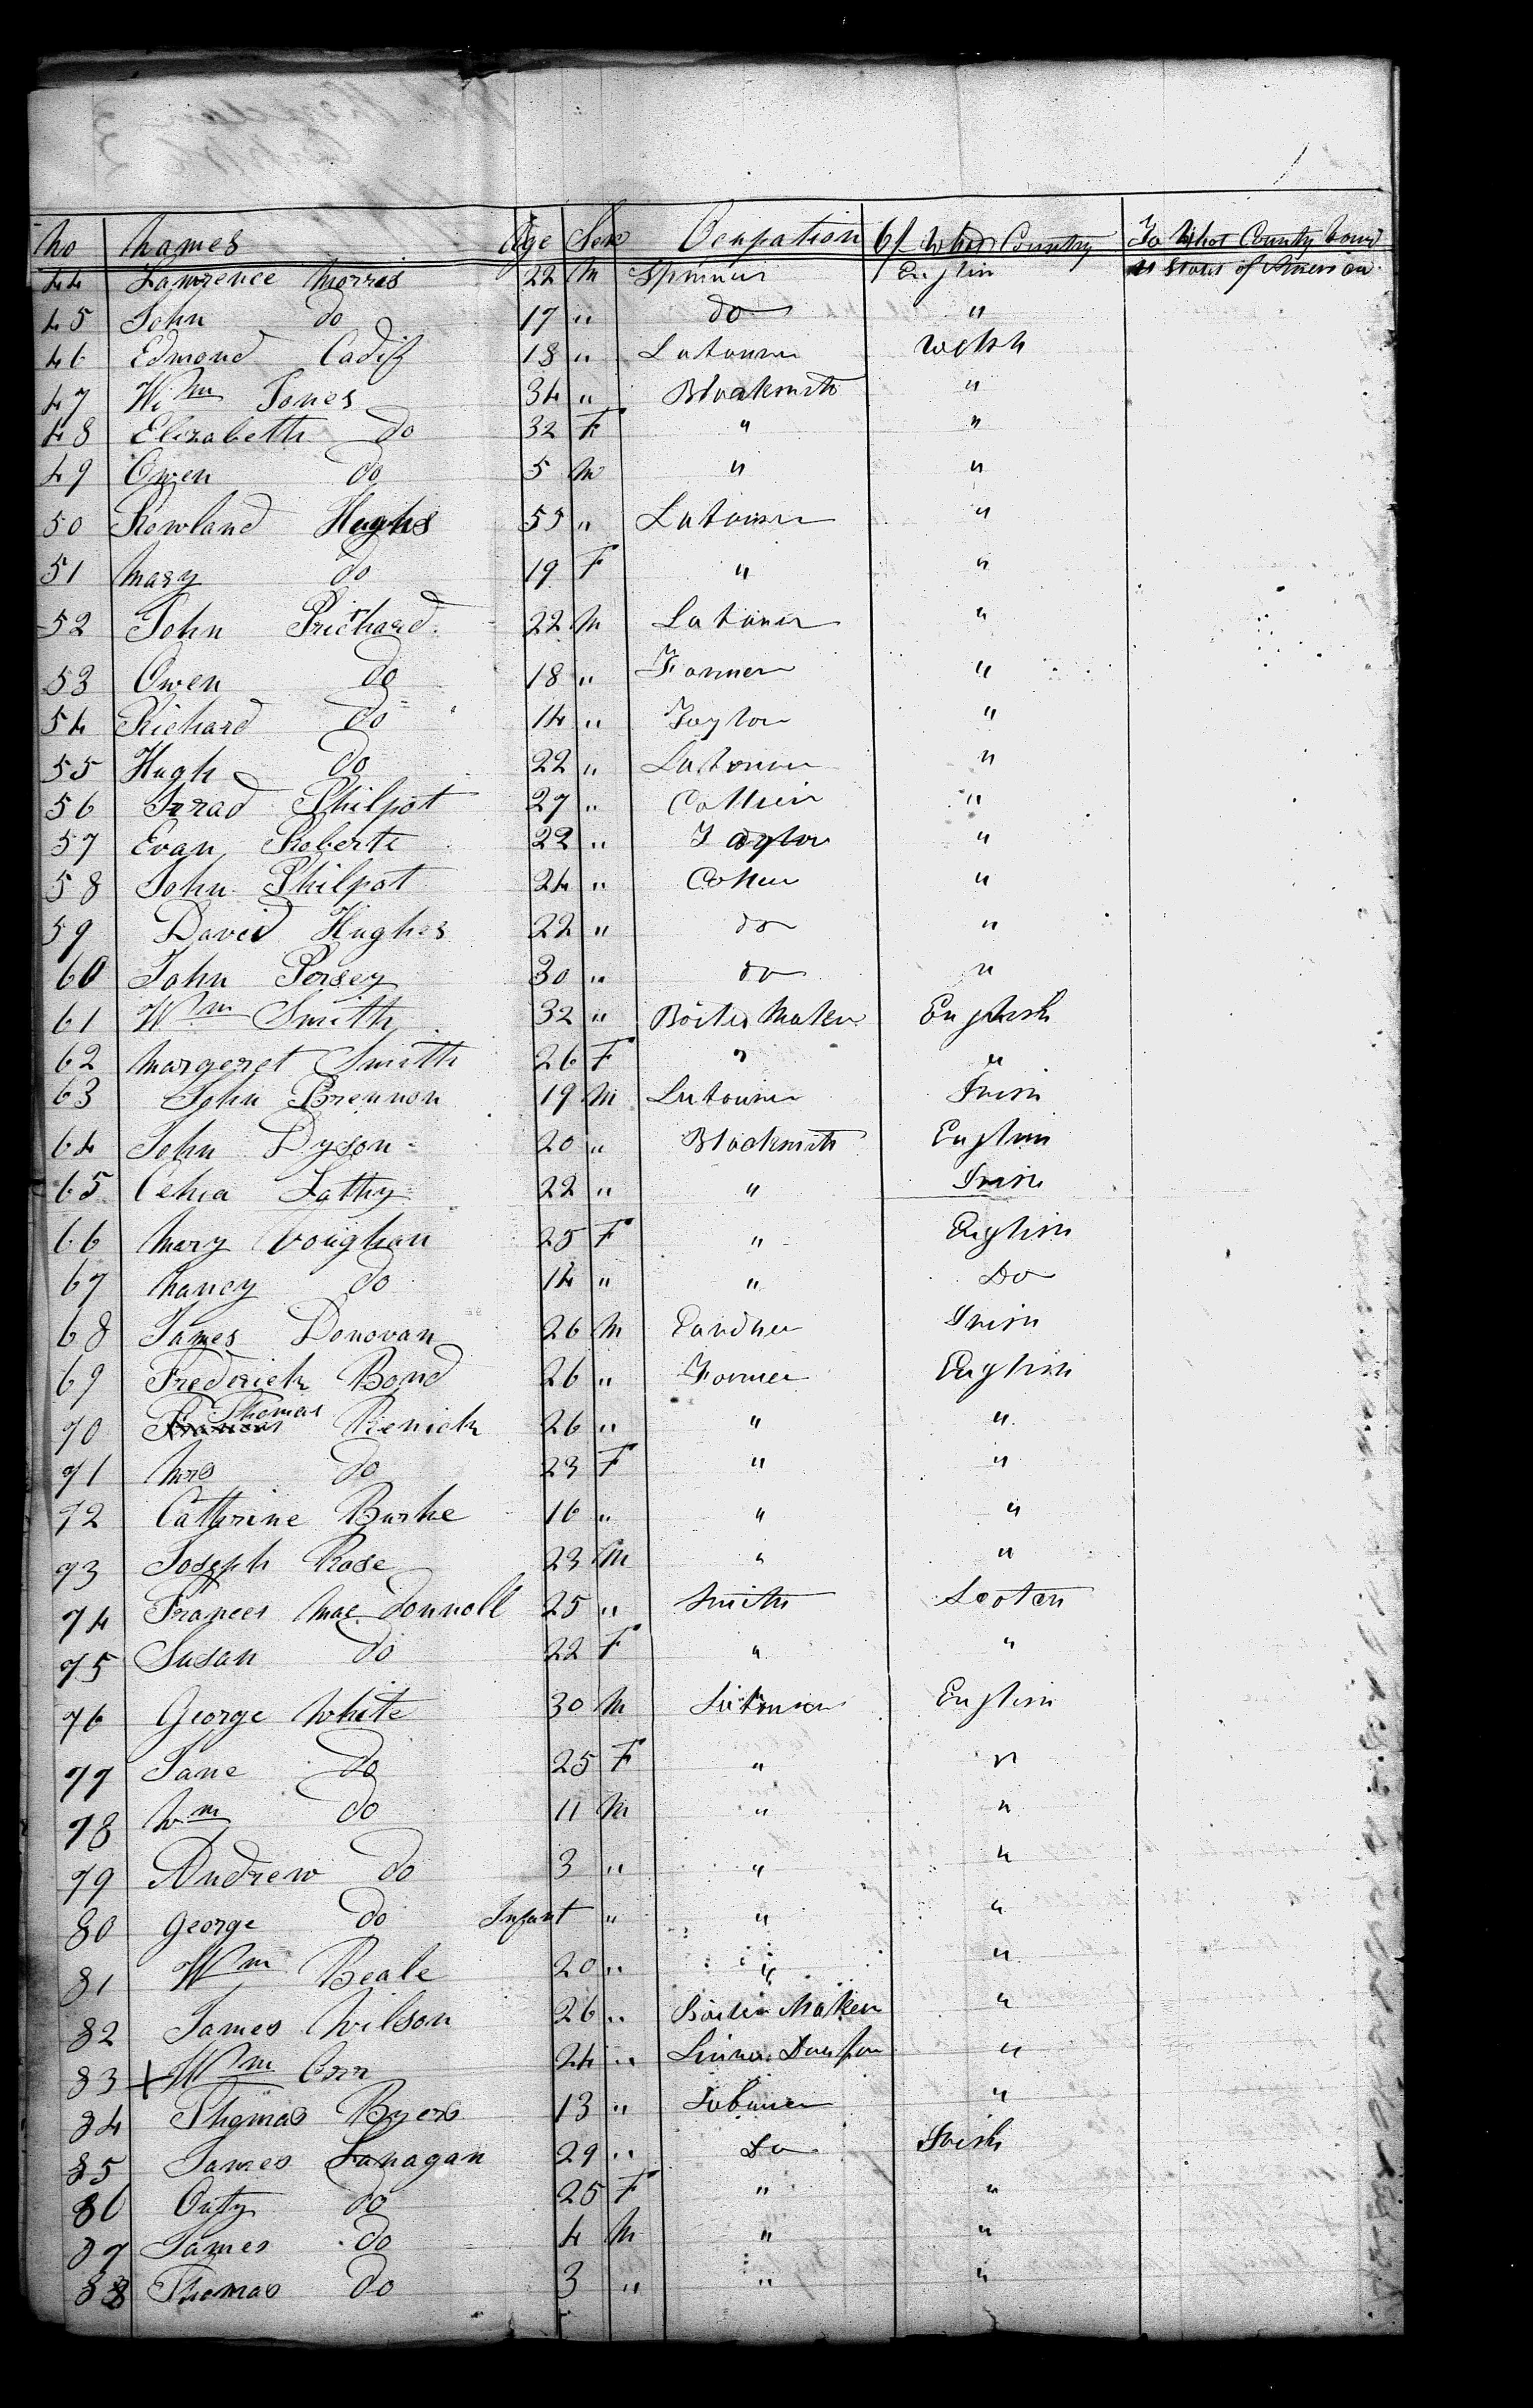 No Names Age Sex Ocupation Of What Country To What Country bound
44 Lawrence Morris 22 M Spinner English U States of American
45 John do 17 " do "
46 Edmond Cadif 18 " Labourer Welsh
47 Wm Jones 34 " Blacksmith "
48 Elizabeth do 32 F " "
49 Owen do 5 M " "
50 Rowland Hughs 55 " Labourer "
51 Mary do 19 F " "
52 John Prichard 22 M Labourer "
53 Owen do 18 " Farmer "
54 Richard do 14 " Taylor "
55 Hugh do 22 " Labourer "
56 Philpot 27 " Collier "
57 Evan Roberts 22 " Taylor "
58 John Philpot 24 " Collier "
59 David Hughes 22 " do "
60 John Persey 30 " do "
61 Wm Smith 32 " Boiler Maker English
62 Margeret Smith 26 F " "
63 John Brennon 19 M Labourer Irish
64 John Dyson 20 " Blacksmith English
65 Lathy 22 " " Irish
66 Mary Voughan 25 F " English
67 Nancy do 14 " " Do
68 James Donovan 26 M Gardner Irish
69 Frederick Bond 26 " Farmer English
70 Thomas Renick 26 " " "
71 Mrs do 23 F " "
72 Cathrine Burke 16 " " "
73 Joseph Rose 23 M " "
74 Frances Mac Donnoll 25 " Smith Scotch
75 Susan do 22 F " "
76 George White 30 M Labourer English
77 Jane do 25 F " "
78 Wm do 11 M " "
79 Andrew do 3 " " "
80 George do Infant " " "
81 Wm Beale 20 " " "
82 James Wilson 26 " Boiler Maker "
83 + Wm Orr 24 " "
84 Thomas Byers 13 " Labourer "
85 James Lanagan 29 " Do Irish
86 do 25 F " "
87 James do 4 M " "
88 Thomas do 3 " " "